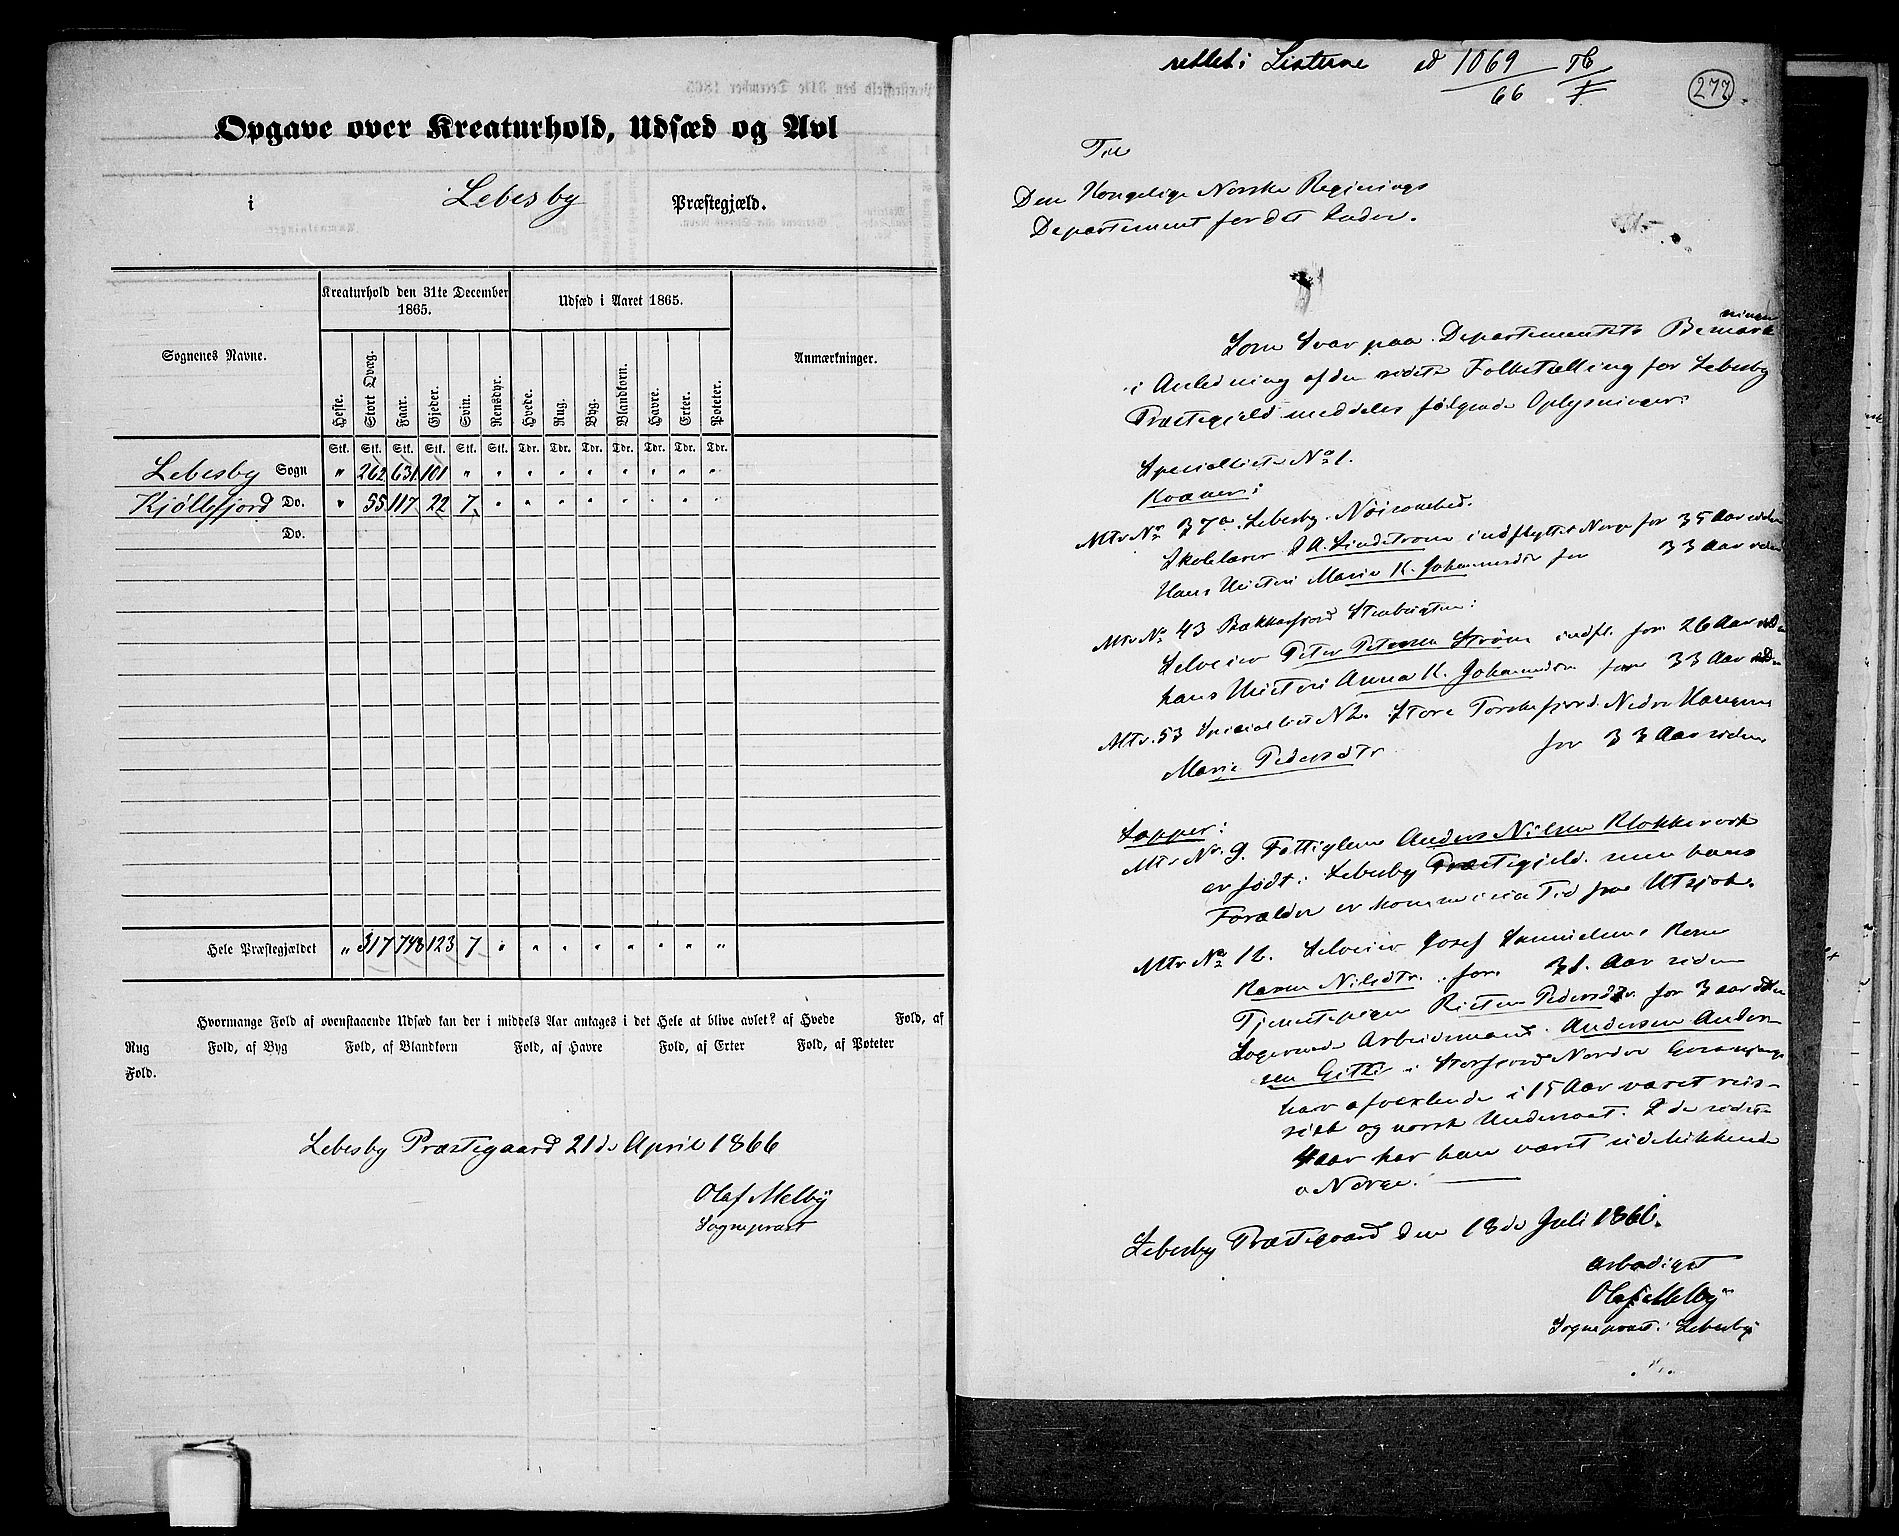 Opgave over Kreaturhold, Udsæd og Avl
i Lebesby Præstegjæld.
Sognenes Navne.
Kreaturhold den 31te December 1865.
Udsæd i Aaret 1865.
Anmærkninger.
Heste. Stort Qvæg. Faar. Gjeder. Svin. Rensdyr. Hvede. Rug. Byg. Blandkorn. Havre. Erter. Poteter.
Stk. Stk. Stk. Stk. Stk. Stk. Tdr. Tdr. Tdr. Tdr. Tdr. Tdr. Tdr.
Lebesby Sogn " 262 631 101 " " " " " " " " "
Kjöllefjord Do. " 55 117 22 7 " " " " " " " "
Do.
Hele Præstegjældet " 317 748 123 7 " " " " " " " "
Hvormange Fold af ovenstaaende Udsæd kan der i middels Aar antages i det Hele at blive avlet? af Hvede Fold, af
Rug Fold, af Byg Fold, af Blandkorn Fold, af Havre Fold, af Erter Fold, af Poteter
Fold.
Lebesby Præstegaard 21de April 1866
Olaf Melby
Sognepræst
rettet i Listerne 1069
66
277
Til
Den Kongelige Norske Regjerings
Departement for det Indre.
Som Svar paa Departementets Bemærk
ninger
i Anledning af den sidste Folketælling for Lebesby
Præstegjeld meddeles følgende Oplysninger:
Specialliste No 1.
Kvæner:
Mtr No 37a Lebesby
Skolelærer J A. Lindstrøm indflyttet Norge for 35 Aar siden
Hans Hustru Maria K. Johannesdtr for 33 Aar siden
Mtr No 43 Bekkarfjord
Selveier Peter Petersen Strøm indfl. for 26 Aar siden
hans Hustru Anna K. Johannesdtr for 33 Aar siden
Mtr. 53 Specialliste N 2. Store Torskefjord. Nedre
Marie Pedersdtr for 33 Aar siden
Lapper:
Mtr No. 9. Fattiglem Anders Nilsen Klokkervek
er født i Lebesby Præstegjeld. men hans
Forældre er komne i sin Tid fra Utsjok.
Mtr No 12. Selveier Josef Samuelsens Kone
Karen Nilsdtr. for 31. Aar siden
Tjenestepigen Kirsten Pedersdtr. for 3 aar siden
Logerende Arbeidsmand. Andersen Ander-
sen Gitti i Storfjord Nordre
har afvexlende i 15 Aar været rus-
sisk og norsk Undersaat. I de sidste
4 aar har han været udelukkende
i Norge.
Lebesby Præstegaard den 18de Juli 1866.
ærbødigst
Olaf Melby
Sognepræst i Lebesby